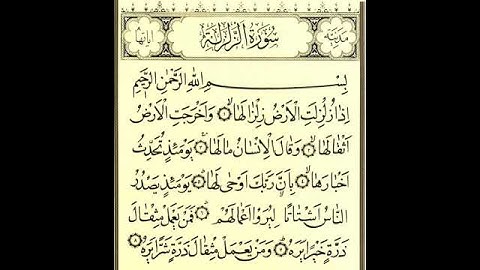 مدنية سورة الزلزلة آياتها
بِسْمِ اللّٰهِ الرَّحْمٰنِ الرَّحِيْمِ
اِذَا زُلْزِلَتِ الْاَرْضُ زِلْزَالَهَا ۝١ وَاَخْرَجَتِ الْاَرْضُ
اَثْقَالَهَا ۝٢ وَقَالَ الْاِنْسَانُ مَا لَهَا ۝٣ يَوْمَئِذٍ تُحَدِّثُ
اَخْبَارَهَا ۝٤ بِاَنَّ رَبَّكَ اَوْحٰى لَهَا ۝٥ يَوْمَئِذٍ يَصْدُرُ
النَّاسُ اَشْتَاتًا لِيُرَوْا اَعْمَالَهُمْ ۝٦ فَمَنْ يَعْمَلْ مِثْقَالَ
ذَرَّةٍ خَيْرًا يَرَهُ ۝٧ وَمَنْ يَعْمَلْ مِثْقَالَ ذَرَّةٍ شَرًّا يَرَهُ ۝٨